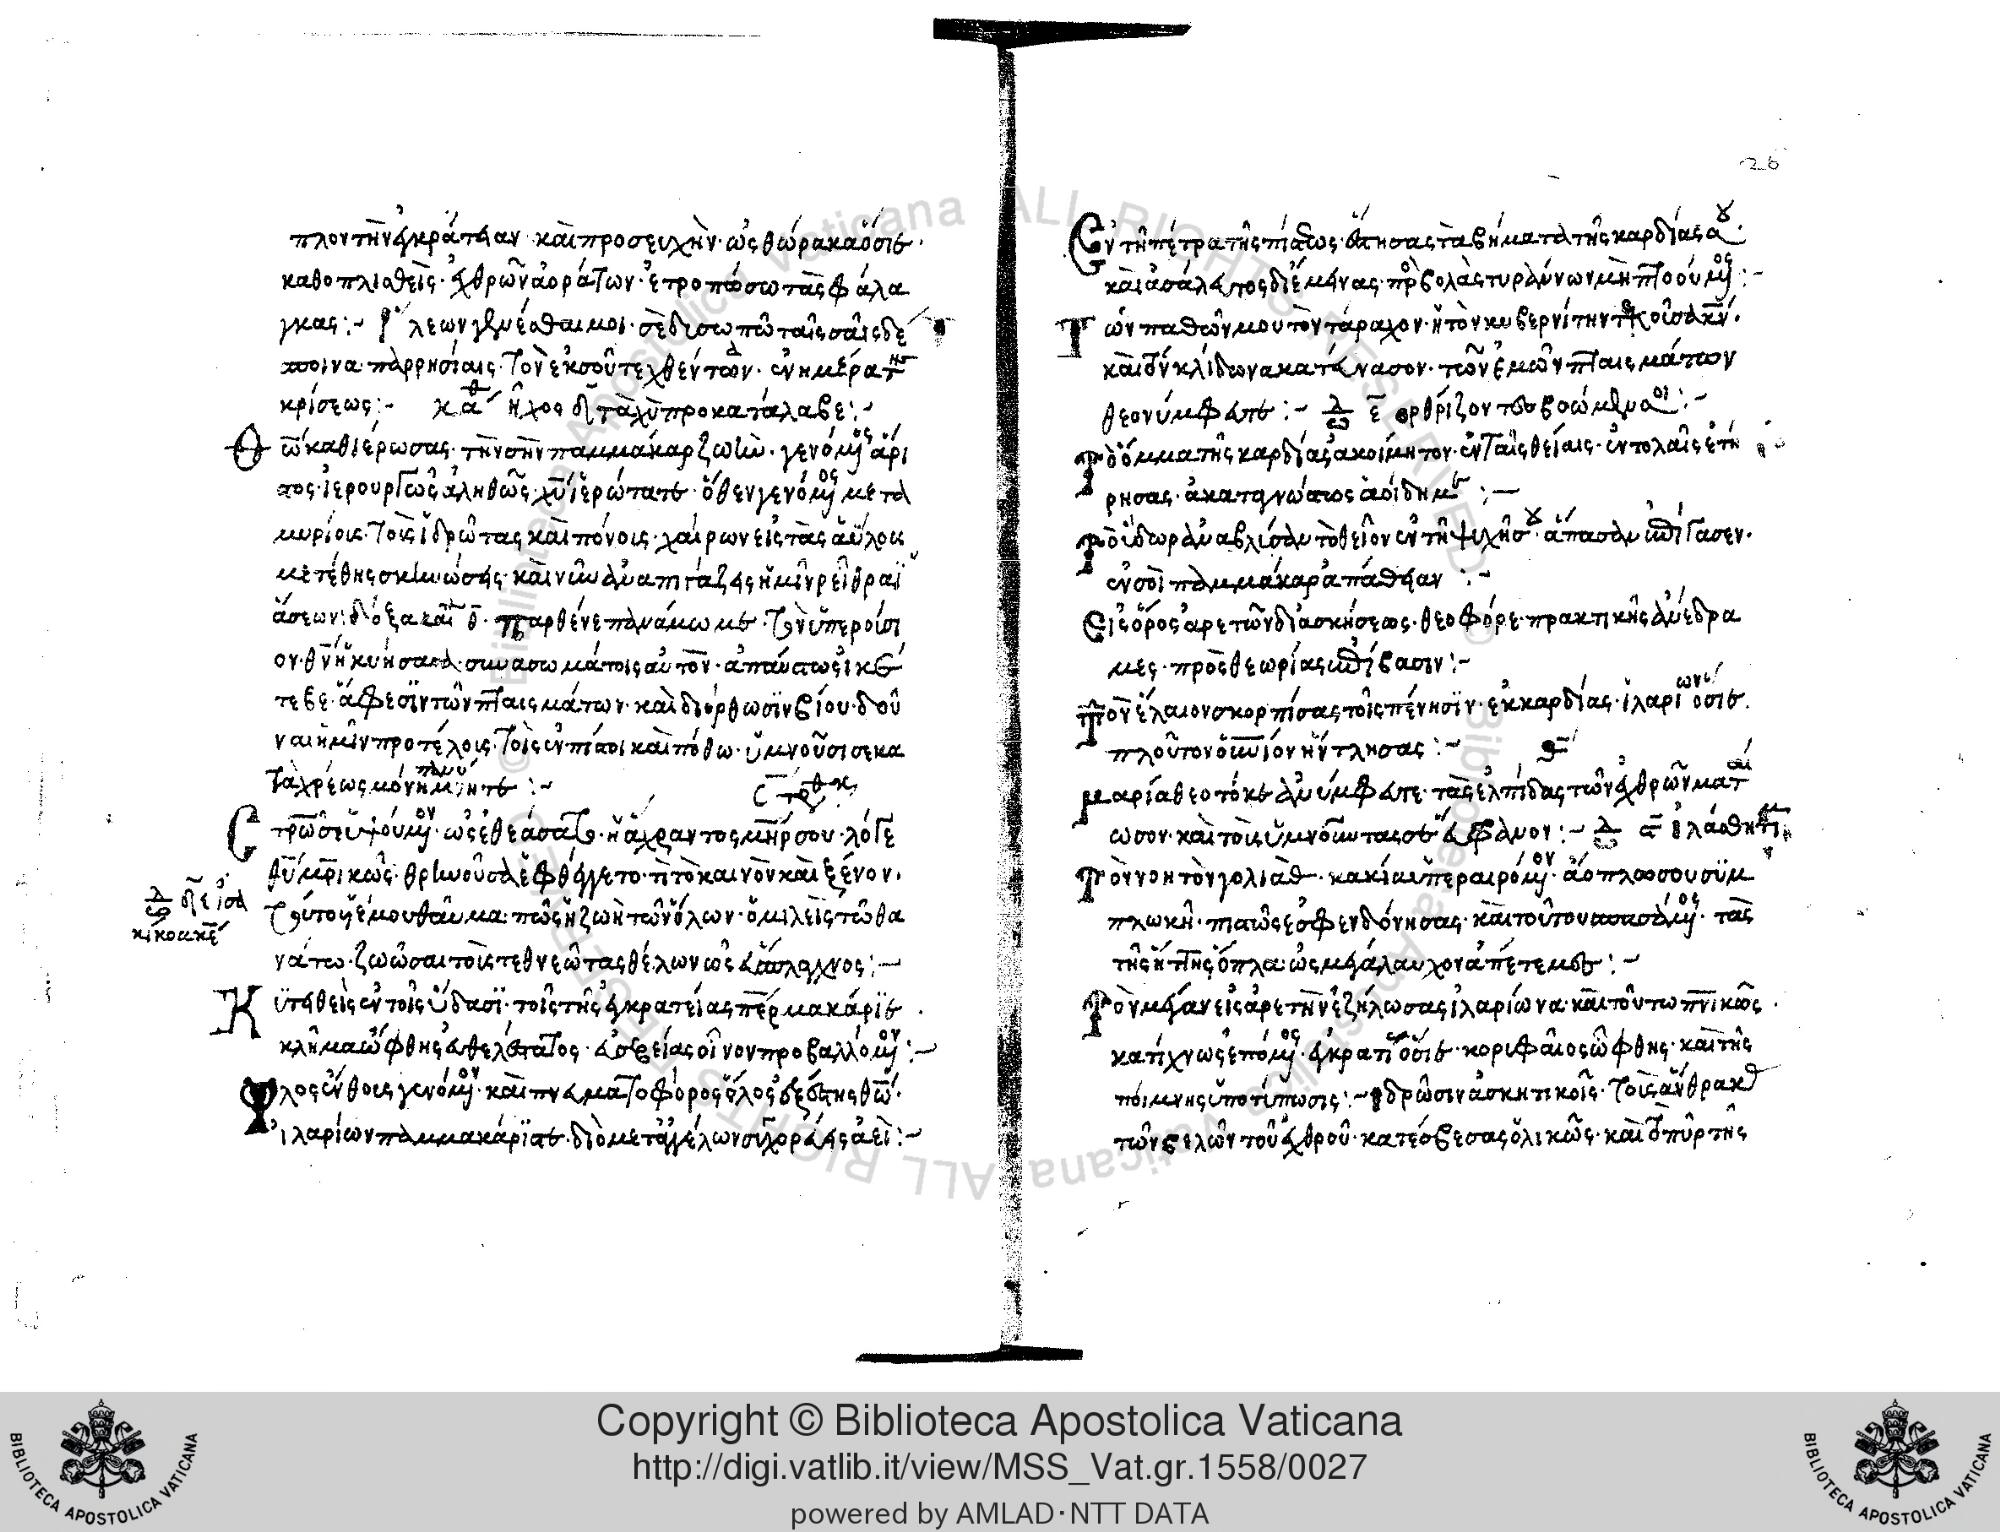 πλον τὴν ἐγκράτειαν καὶ προσευχὴν· ὡς θώρακα ὅσιε·
καθοπλισθεὶς· ἐχθρῶν ἀοράτων· ἐτροπώσω τὰς φάλα
γκας:~ λεων γενέσθαι μοι· σὲ δυσωπῶ ταῖς σαῖς δέ
σποινα παρρησίαις· τὸν ἐκ σοῦ τεχθέντα· ἐν ἡμέρα τῆς
κρίσεως:~ ἦχος δ τάχυ προκατάλαβε:~
Θῶ καθιέρωσας· τὴν σὴν παμμάκαρ ζωὴν· γενόμς ἄρι
στος· ἱερουργὸς ἀληθῶς χυ ἱερώτατε· ὅθεν γενόμος μετὰ
μυρίοις· τοῖς ἱδρῶτας καὶ πόνοις· χαίρων εἰς τὰς ἀΰλοις
μετέθης σκηνώσεις· καὶ νῦν ἀναπηγάζεις ἡμῖν ῥεῖθρα ἰ
άσεων: δόξα καὶ ν· παρθένε πανάμωμε· τὸν ὑπερούσι
ον· θν ἡ κυήσασα· σὺν ἀσωμάτοις αὐτὸν· ἀπαύστως ἱκέ
τευε· ἄφεσϊν τῶν πταισμάτων· καὶ διόρθωσϊν βίου· δοῦ
ναι ἡμῖν πρὸ τέλοις· τοῖς ἐν πίστι καὶ πόθω· ὑμνοῦσι σε κα
τὰ χρέως μόνη πανύμνητε:~
Στρῶ σε ὑψούμον· ὡς ἐθεάσατο· ἡ ἄχραντος μηρ σου· λόγε
θυ μρικῶς· θρηνοῦσα ἐφθέγγετο· τί τὸ καινὸν καὶ ξένον·
τοῦτο υἱέ μου θαῦμα· πῶς ἡ ζωὴ τῶν ὅλων· ὁμιλεῖς τῶ θα
νάτω· ζωῶσαι τοὶς τεθνεῶτας θέλων ὡς εὔσπλαχνος:~
Κϋτευθεὶς ἐν τοῖς ὕδασϊ· τοῖς τῆς ἐγκρατείας περ μακάρϊε
κλῆμα ὤφθης εὐθελέστατος· εὐσεβείας οἶνον προβαλλόμον:~
Ὅλος ἔνθεος γενόμον· καὶ πνευματοφόρος ὅλος ἔστης θῶ·
ἱλαρίων παμμακάρϊστε· διὸ μετ' ἀγγέλων συγχορεύεις ἀεὶ:~
λ ω δ εἰσα
κήκοα κε
26
Ἐν τῆ πέτρα τῆς πίστεως· ἔστησας τὰ βήματα τῆς καρδίας σου·
καὶ ἀσάλευτος διέμεινας· προσβολὰς τυράννων μὴ πτοούμος:~
Τῶν παθῶν μου τὸν τάραχον· ἡ τὸν κυβερνίτην τεκοῦσα κν·
καὶ τὸν κλύδωνα κατεύνασον· τῶν ἐμῶν πταισμάτων
θεονύμφευτε:~ λ ω ε ορθρίζοντες βοῶμεν σοι:~
Τὸ ὄμμα τῆς καρδίας ἀκοίμητον· ἐν ταῖς θείαις· ἐντολαῖς ἐτή
ρησας· ἀκαταγνώστος ἀοίδημε:~
Τὸ ὕδωρ ἀναβλίσαν τὸ θεῖον ἐν τῆ ψυχῆ σου· ἅπασαν ἐπήγασεν·
ἐν σοὶ παμμάκαρ ἀπάθειαν:~
Εἰς ὄρος ἀρετῶν δι' ἀσκήσεως· θεοφόρε· πρακτικῆς ἀνέδρα
μες· πρὸς θεωρίας ἐπίβασιν:~
Τὸν ἔλαιον σκορπίσας τοῖς πένησϊν· ἐκ καρδίας· ἱλαρίων ὅσιε·
πλοῦτον οὐράνιον ἤντλησας:~
Μαρία θεοτόκε ἀνύμφευτε· τὰς ἐλπίδας τῶν ἐχθρῶν ματαί
ωσον· καὶ τοὺς ὑμνοῦντας σε εὔφρανον:~ λ ω ς ἱλάσθητι
Τὸν νοητὸν γολιὰθ· κακίαν ὑπεραιρόμον· ἀόπλω σου σϋμ
πλωκῆ· πιστῶς ἐσφενδόνησας· καὶ τούτου σπασάμος· τὰς
τῆς ἥττης ὅπλα· ὡς μεγάλαυχον ἀπέτεμες:~
Τὸν μέγαν εἰς ἀρετὴν ἐζήλωσας ἱλαρίωνα· καὶ τούτω πνικῶς·
κατ' ἴχνως ἑπόμος· ἐγκρατὴς ὅσιε· κορυφαῖος ὤφθης· καὶ τῆς
ποίμνης ὑποτύπωσις:~ ἱδρῶσιν ἀσκητικοῖς· τοὺς ἄνθρακας
τῶν βελῶν τοῦ ἐχθροῦ· κατέσβεσας ὁλικῶς· καὶ τὸ πῦρ τῆς
Copyright © Biblioteca Apostolica Vaticana
http://digi.vatlib.it/view/MSS_Vat.gr.1558/0027
powered by AMLAD·NTT DATA
BIBLIOTECA APOSTOLICA VATICANA
BIBLIOTECA APOSTOLICA VATICANA